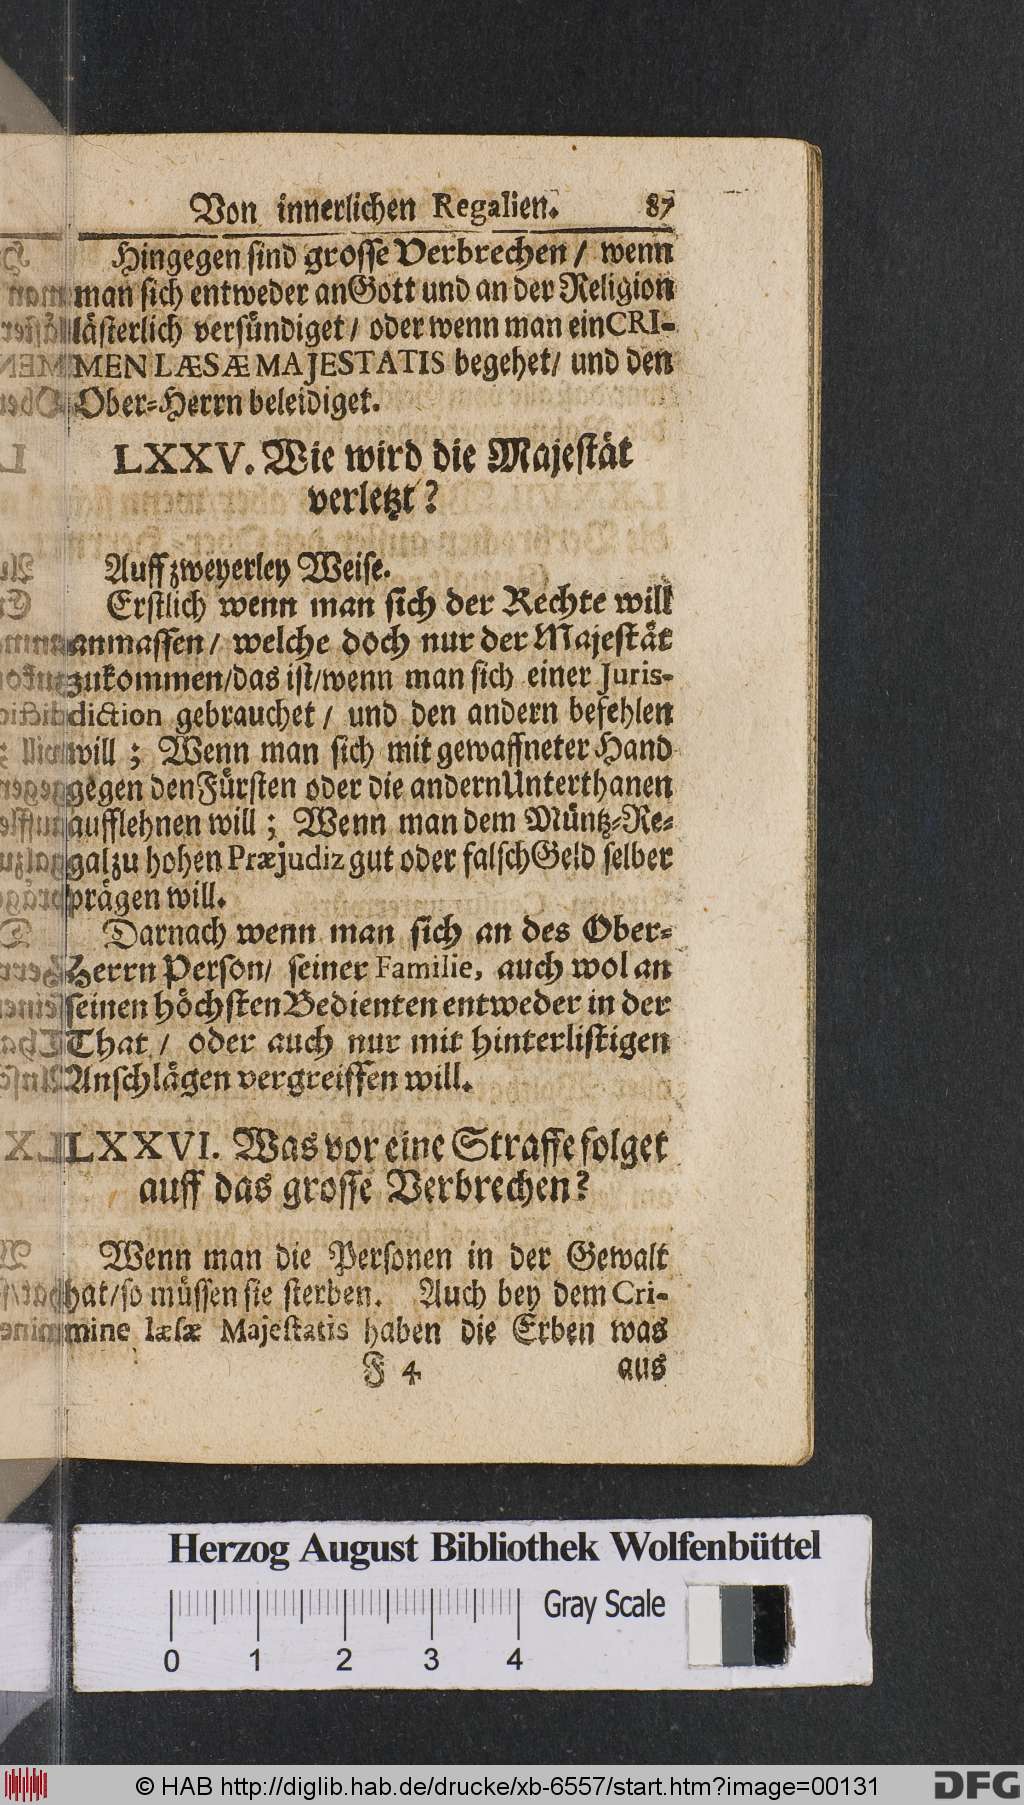 Von innerlichen Regalien. 87
Hingegen sind grosse Verbrechen / wenn
man sich entweder an Gott und an der Religion
lästerlich versündiget / oder wenn man ein CRI-
MEN LÆSÆ MAJESTATIS begehet / und den
Ober-Herrn beleidiget.
LXXV. Wie wird die Majestät
verletzt?
Auff zweyerley Weise.
Erstlich wenn man sich der Rechte will
anmassen / welche doch nur der Majestät
zukommen / das ist / wenn man sich einer Juris-
diction gebrauchet / und den andern befehlen
will ; Wenn man sich mit gewaffneter Hand
gegen den Fürsten oder die andern Unterthanen
aufflehnen will ; Wenn man dem Müntz-Re-
gal zu hohen Præjudiz gut oder falsch Geld selber
prägen will.
Darnach wenn man sich an des Ober-
Herrn Person / seiner Familie, auch wol an
seinen höchsten Bedienten entweder in der
That / oder auch nur mit hinterlistigen
Anschlägen vergreiffen will.
LXXVI. Was vor eine Straffe folget
auff das grosse Verbrechen?
Wenn man die Personen in der Gewalt
hat / so müssen sie sterben. Auch bey dem Cri-
mine læsæ Majestatis haben die Erben was
F 4 aus
Herzog August Bibliothek Wolfenbüttel
Gray Scale
0 1 2 3 4
© HAB http://diglib.hab.de/drucke/xb-6557/start.htm?image=00131
DFG